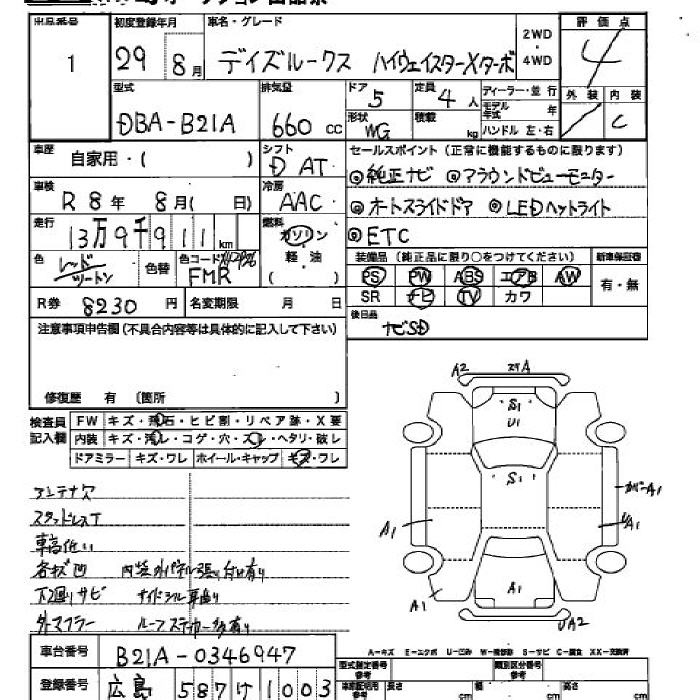 出品番号 1
初度登録年月 29 8月
車名・グレード デイズルークス ハイウェイスターXターボ
2WD・4WD
評価点 4
型式 DBA-B21A
排気量 660cc
ドア 5
定員 4人
ディーラー・並行
形状 WG
積載 kg
モデル年式 年
ハンドル 左・右
外装
内装 C
車歴 自家用・( )
シフト D AT
セールスポイント (正常に機能するものに限ります)
◎純正ナビ ◎アラウンドビューモニター
車検 R8年 8月( 日)
冷房 AAC
◎オートスライドドア ◎LEDヘットライト
走行 13万9千911km
燃料 ガソリン 軽油 ( )
◎ETC
色 レッド ツートン
色替
色コードNo. FMR
装備品 (純正品に限り○をつけてください)
新車保証書 有・無
PS PW ABS エアB AW
SR ナビ TV カワ
R券 8230円
名変期限 月 日
後日品 ナビSD
注意事項申告欄(不具合内容等は具体的に記入して下さい)
修復歴 有 (箇所 )
検査員記入欄
FW キズ・飛石・ヒビ割・リペア跡・X要
内装 キズ・汚レ・コゲ・穴・スレ・ヘタリ・破レ
ドアミラー キズ・ワレ ホイール・キャップ キズ・ワレ
アンテナ欠
スタッドレスT
車高低い
各キズ凹 内装外パネル張り付け有り
下廻りサビ サイドシル耳曲り
外マフラー ルーフステッカー多数有り
A2
A
S1
U1
S1
カバーA1
A1
A1
A1
A1
UA2
A-キズ E-エクボ U-凹ミ W-補修跡 S-サビ C-腐食 XX-交換済
車台番号 B21A-0346947
型式指定番号 参考
類別区分番号 参考
登録番号 広島 587 1003
車庫証明用 参考 長さ cm 幅 cm 高さ cm